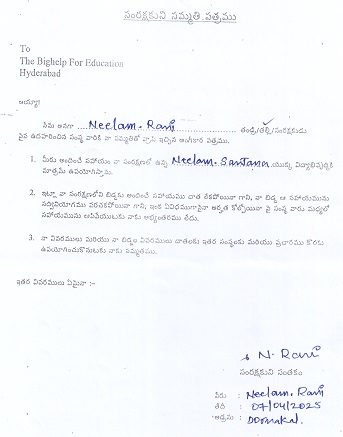 సంరక్షకుని సమ్మతి పత్రము
To
The Bighelp For Education
Hyderabad
అయ్యా!
నేను అనగా Neelam. Rani తండ్రి/తల్లి/సంరక్షకుడు
పైన ఉదహరించిన సంస్థ వారికి నా సమ్మతితో వ్రాసి ఇచ్చిన అంగీకార పత్రము.
1. మీరు అందించే సహాయం నా సంరక్షణలో ఉన్న Neelam. Santana యొక్క విద్యాభివృద్ధికి
మాత్రమే ఉపయోగిస్తాను.
2. ఇట్లూ నా సంరక్షణలోని బిడ్డకు అందించే సహాయము దాత లేకపోయినా గాని, నా బిడ్డ ఆ సహాయమును
సద్వినియోగము పరచకపోయినా గాని, ఇంక ఏవిధముగానైనా అర్హత కోల్పోయినా పై సంస్థ వారు మధ్యలో
సహాయమును ఆపివేయుటకు నాకు అభ్యంతరము లేదు.
3. నా వివరములు మరియు నా బిడ్డల వివరములు దాతలకు ఇతర సంస్థలకు మరియు ప్రచారము కొరకు
ఉపయోగించుకొనుటకు నాకు సమ్మతము.
ఇతర వివరములు ఏమైనా :-
N. Rani
సంరక్షకుని సంతకం
పేరు : Neelam. Rani
తేది : 07/04/2025
అడ్రసు : Dornakal.